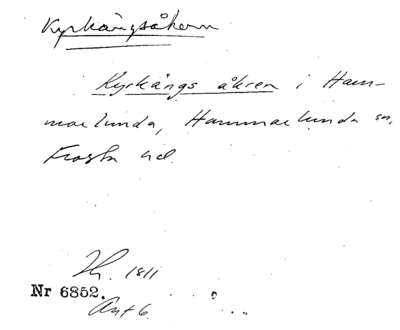 Kyrkängsåkern
Kyrkängs åkren i Ham-
marlunda, Hammarlunda sn,
Frosta hd.
1811
Nr 6852.
Ant 6.